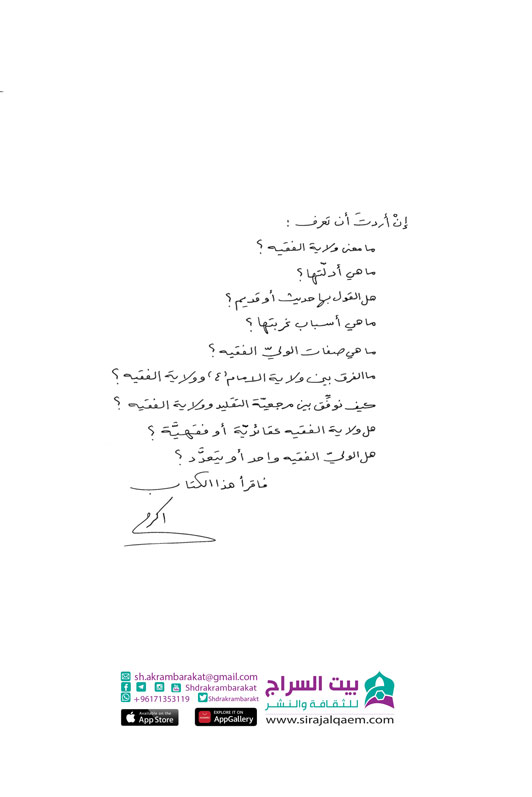 إنْ أردتَ أن تعرف :
ما معنى ولاية الفقيه ؟
ما هي أدلّتها ؟
هل القول بها حديث أو قديم ؟
ما هي أسباب غربتها ؟
ما هي صفات الوليّ الفقيه ؟
ما الفرق بين ولاية الإمام (ع) وولاية الفقيه ؟
كيف نوفِّق بين مرجعيّة التقليد وولاية الفقيه ؟
هل ولاية الفقيه عقائديّة أو فقهيَّة ؟
هل الوليّ الفقيه واحد أو يتعدَّد ؟
فاقرأ هذا الكتاب
أكرم
sh.akrambarakat@gmail.com
Shdrakrambarakat
+96171353119 Shdrakrambarakt
Available on the App Store
EXPLORE IT ON AppGallery
بيت السراج
للثقافة والنشر
www.sirajalqaem.com